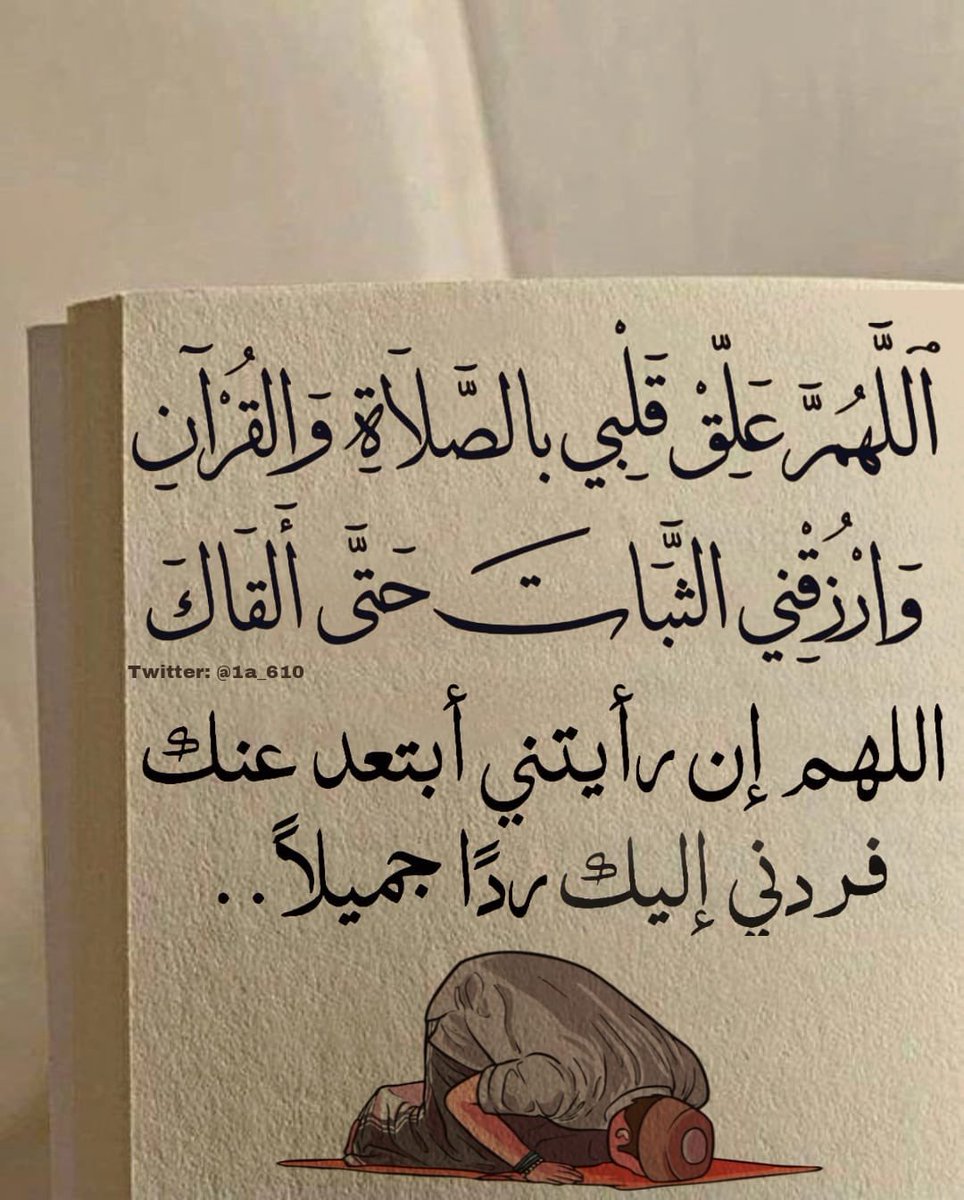 ٱللَّهُمَّ عَلِّقْ قَلْبِي بالصَّلَاةِ وَالقُرْآنِ
وَارْزُقْنِي الثَّبَاتَ حَتَّى أَلقَاكَ
Twitter: @1a_610
اللهم إن رأيتني أبتعد عنك
فردني إليك ردًا جميلاً..